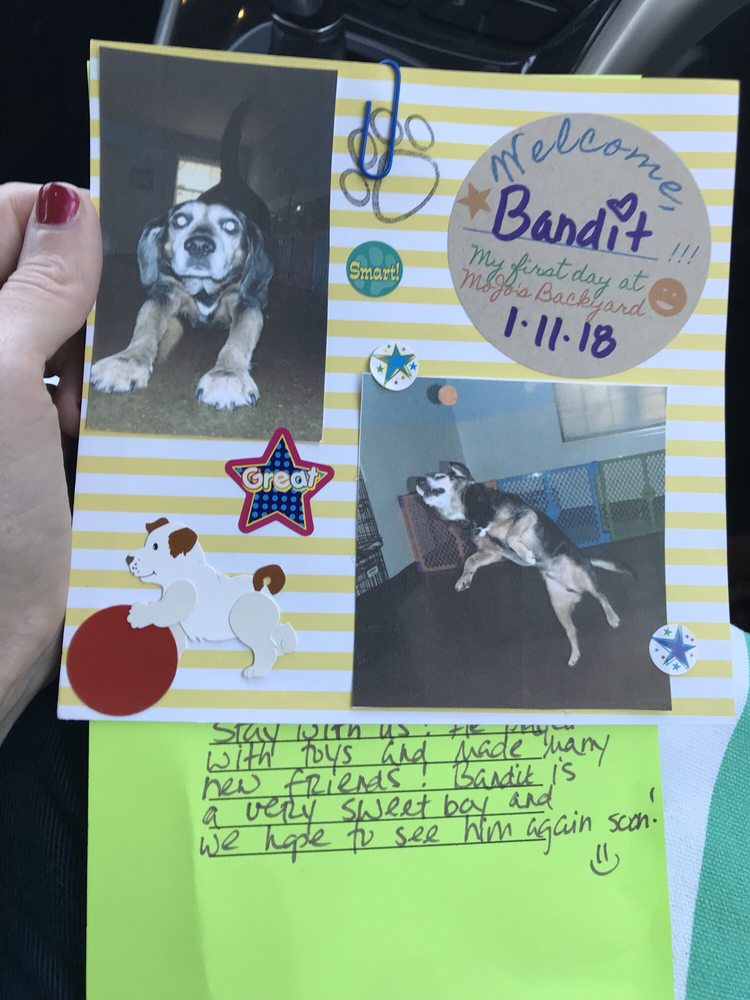 Welcome,
Bandit !!!
My first day at
MoJo's Backyard
1·11·18
Smart!
Great
Stay with us! He played
with toys and made many
new friends! Bandit is
a very sweet boy and
we hope to see him again soon!